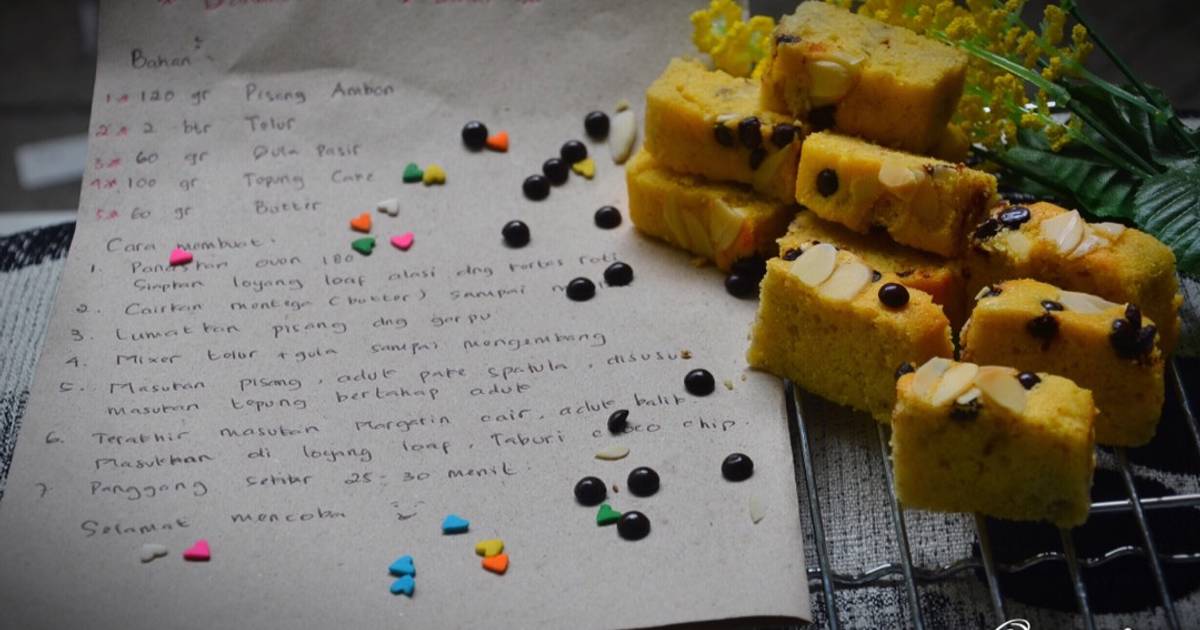 Bahan :
1* 120 gr Pisang Ambon
2* 2 btr Telur
3* 60 gr Gula Pasir
4* 100 gr Tepung Cake
5* 60 gr Butter
Cara membuat :
1. Panaskan oven 180
Siapkan loyang loaf alasi dng kertas roti
2. Cairkan mentega (butter) sampai
3. Lumatkan pisang dng garpu
4. Mixer telur + gula sampai mengembang
5. Masukan pisang, aduk pake spatula, disusul
masukan tepung bertahap aduk
6. Terakhir masukan Margarin cair, aduk balik
Masukkan di loyang loaf. Taburi choco chip.
7. Panggang sekitar 25-30 menit
Selamat mencoba